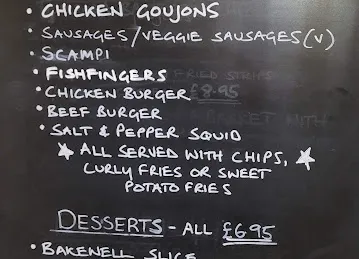 • CHICKEN GOUJONS
• SAUSAGES/VEGGIE SAUSAGES (V)
• SCAMPI
• FISHFINGERS FRIED STRIPS
• CHICKEN BURGER £8.95
• BEEF BURGER BASKET WITH
• SALT & PEPPER SQUID
★ ALL SERVED WITH CHIPS, ★
CURLY FRIES OR SWEET
POTATO FRIES
DESSERTS - ALL £6.95
• BAKEWELL SLICE